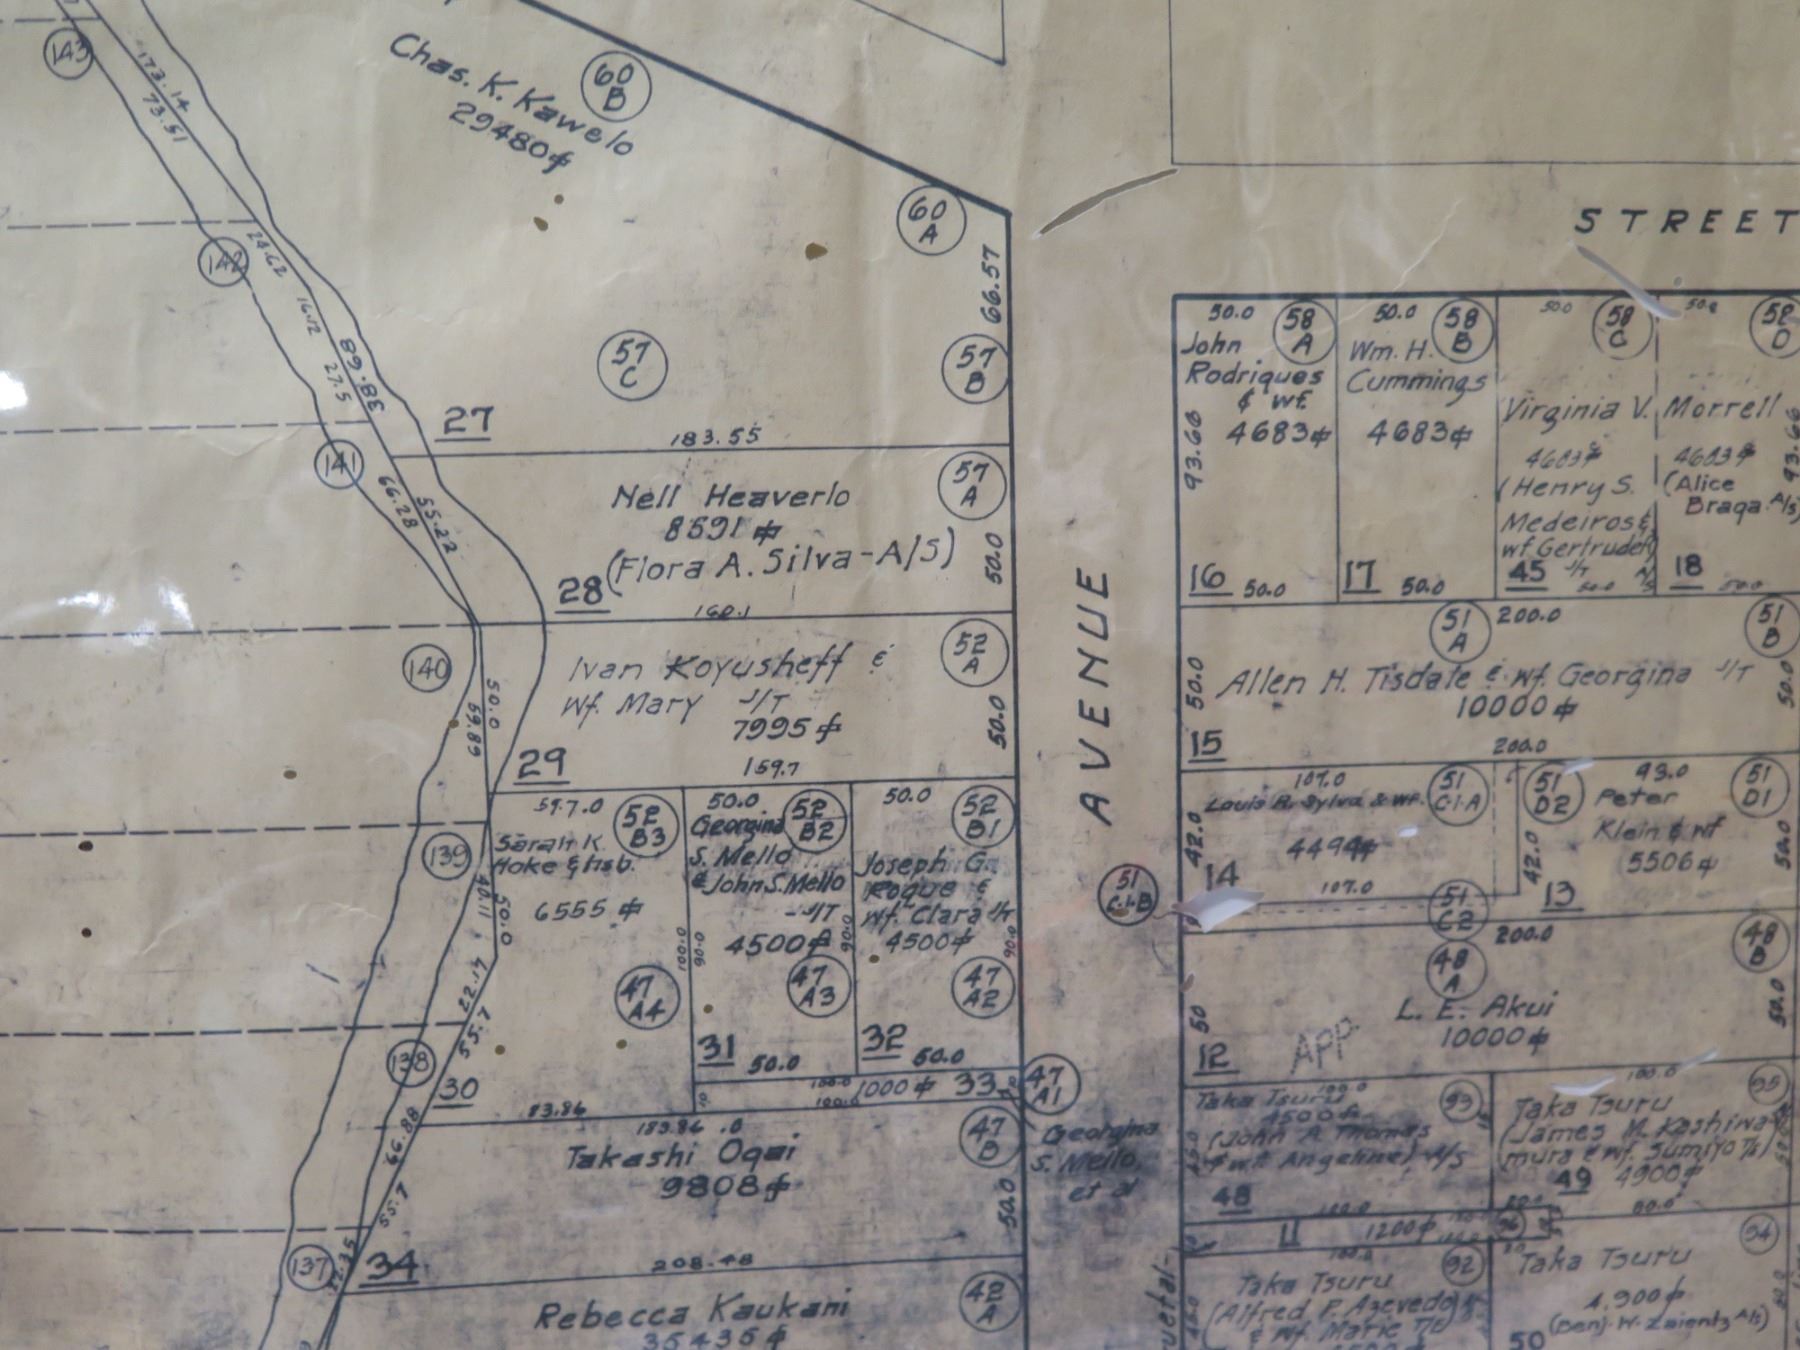 143
173.14
73.51
Chas. K. Kawelo
29480⌗
60
B
60
A
66.57
142
24.62
16.12
27.5
38.68
57
C
57
B
27
183.55
141
66.28
55.22
Nell Heaverlo
8591⌗
(Flora A. Silva-A/S)
57
A
50.0
28
160.1
140
50.0
59.89
Ivan Koyusheff &
Wf. Mary J/T
7995⌗
52
A
50.0
29
159.7
139
40.11
50.0
59.7.0
52
B3
Sarah K.
Hoke & Hsb.
6555⌗
47
A4
100.0
30
83.86
50.0
52
B2
Georgina
S. Mello
& John S. Mello
-J/T
4500⌗
90.0
90.0
47
A3
31
50.0
50.0
52
B1
Joseph G.
Roque &
wf. Clara J/T
4500⌗
90.0
47
A2
32
50.0
100.0
1000⌗
33
10
100.0
10
47
A1
Georgina
S. Mello,
et al
138
22.17
55.7
66.88
55.7
183.86
Takashi Ogai
9808⌗
47
B
50.0
34
137
208.48
Rebecca Kaukani
35435⌗
42
A
AVENUE
STREET
50.0
58
A
John
Rodriques
& wf.
4683⌗
93.66
16
50.0
50.0
58
B
Wm. H.
Cummings
4683⌗
17
50.0
50.0
58
C
Virginia V. Morrell
4683⌗
(Henry S.
Medeiros &
wf Gertrude)
J/T
45
50.0
58
D
4683⌗
(Alice
Braga. A/S)
93.66
18
50.0
51
A
200.0
51
B
50.0
Allen H. Tisdale & Wf. Georgina J/T
10000⌗
50.0
15
200.0
107.0
51
C-1-A
Louis R. Sylva & wf.
4494⌗
42.0
14
107.0
42.0
51
D2
93.0
51
D1
Peter
Klein & wf
5506⌗
50.0
13
51
C-1-B
51
C2
200.0
48
A
48
B
L. E. Akui
10000⌗
50
50.0
12
APP.
Taka Tsuru
100.0
4500⌗
(John A Thomas
& wf. Angeline) A/S
93
45.0
48
100.0
100.0
95
Taka Tsuru
(James M. Kashiwa-
mura & wf. Sumiyo T/E)
4900⌗
49
80.0
11
1200⌗
96
100.0
92
Taka Tsuru
(Alfred P. Azevedo
& Wf. Marie T/E)
94
Taka Tsuru
4,900⌗
(Benj. W. Zaientz A/S)
50